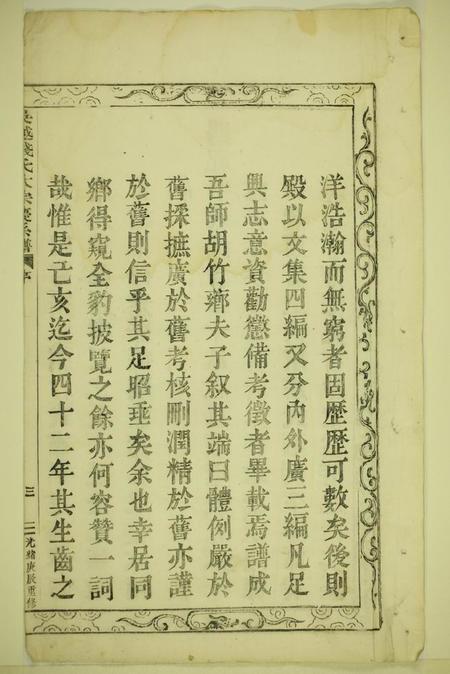 洋浩瀚而無窮者固歷歷可數矣後則
殿以文集四編又分內外廣三編凡足
興志意資勸懲備考徵者畢載焉譜成
吾師胡竹薌夫子叙其端曰體例嚴於
舊採摭廣於舊考核刪潤精於舊亦謹
於舊則信乎其足昭垂矣余也幸居同
鄉得窺全豹披覽之餘亦何容贊一詞
哉惟是己亥迄今四十二年其生齒之
越錢氏大宗
譜
序
三
光緒庚辰重修